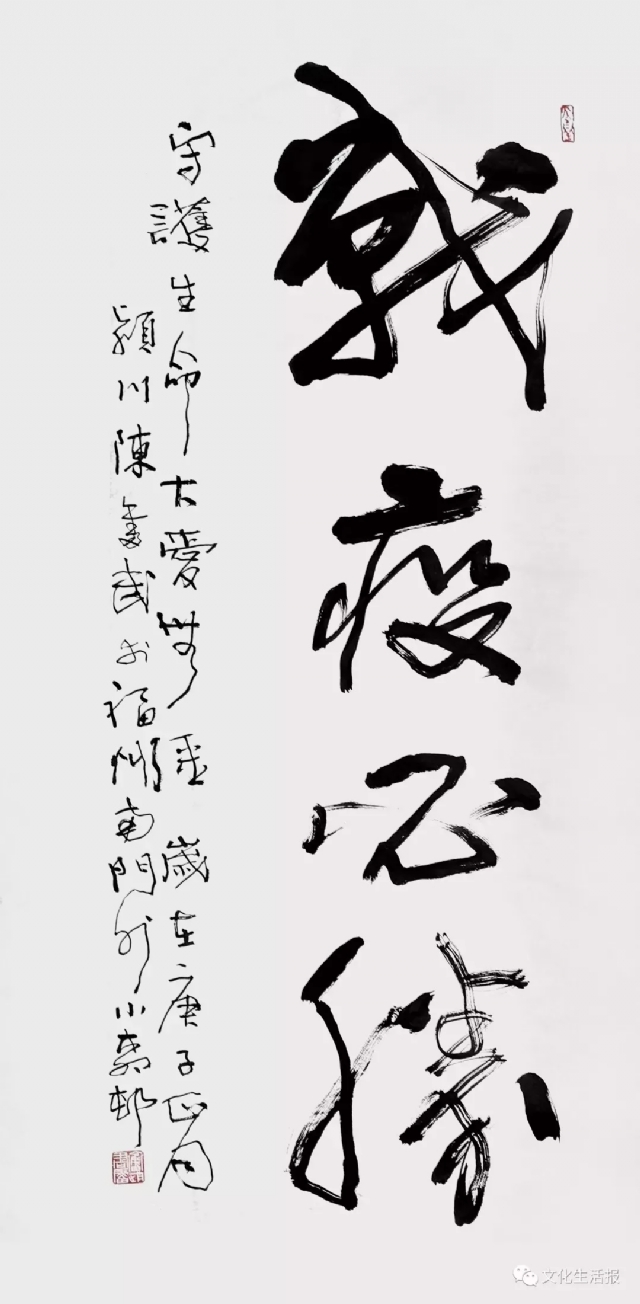 戰疫必勝
守護生命大愛無垂 歲在庚子正月
潁川陳奮武於福州南門外小嵜邨
文化生活报